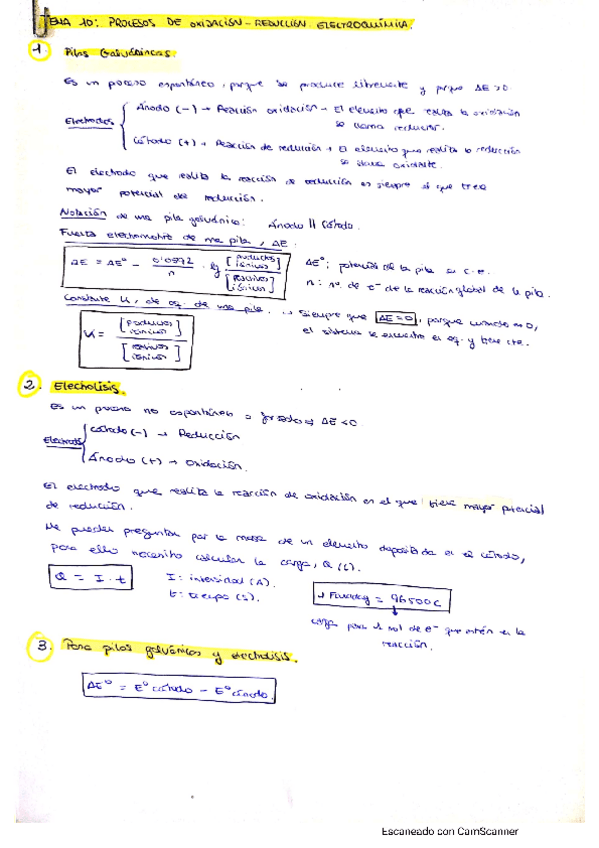 TEMA 10: PROCESOS DE OXIDACIÓN-REDUCCIÓN. ELECTROQUÍMICA.
1. Pilas Galvánicas.
Es un proceso espontáneo, porque se produce libremente y porque ΔE>0
Electrodos
Ánodo (-) → Reacción oxidación → El elemento que realiza la oxidación
se llama reductor.
Cátodo (+) → Reacción de reducción → El elemento que realiza la reducción
se llama oxidante.
El electrodo que realiza la reacción de reducción es siempre el que tiene
mayor potencial de reducción.
Notación de una pila galvánica: Ánodo || Cátodo.
Fuerza electromotriz de una pila, ΔE.
ΔE = ΔE° - 0'0592 / n · lg [productos iónicos] / [reactivos iónicos]
ΔE°: potencial de la pila en c.e.
n: nº de e⁻ de la reacción global de la pila.
Constante K, de eq. de una pila. → Siempre que ΔE=0, porque cuando = 0,
el sistema se encuentra en eq. y tiene cte.
K = [productos iónicos] / [reactivos iónicos]
2. Electrolisis.
Es un proceso no espontáneo o forzado → ΔE<0
Electrodos
Cátodo (-) → Reducción
Ánodo (+) → Oxidación.
El electrodo que realiza la reacción de oxidación en el que tiene mayor potencial
de reducción.
Me pueden preguntar por la masa de un elemento depositada en el cátodo,
para ello necesito calcular la carga, Q (C).
Q = I · t
I: intensidad (A).
t: tiempo (s).
→ Faraday = 96500C
carga para 1 mol de e⁻ que intervienen en la
reacción.
3. Para pilas galvánicas y electrolisis.
ΔE° = E° cátodo - E° ánodo.
Escaneado con CamScanner